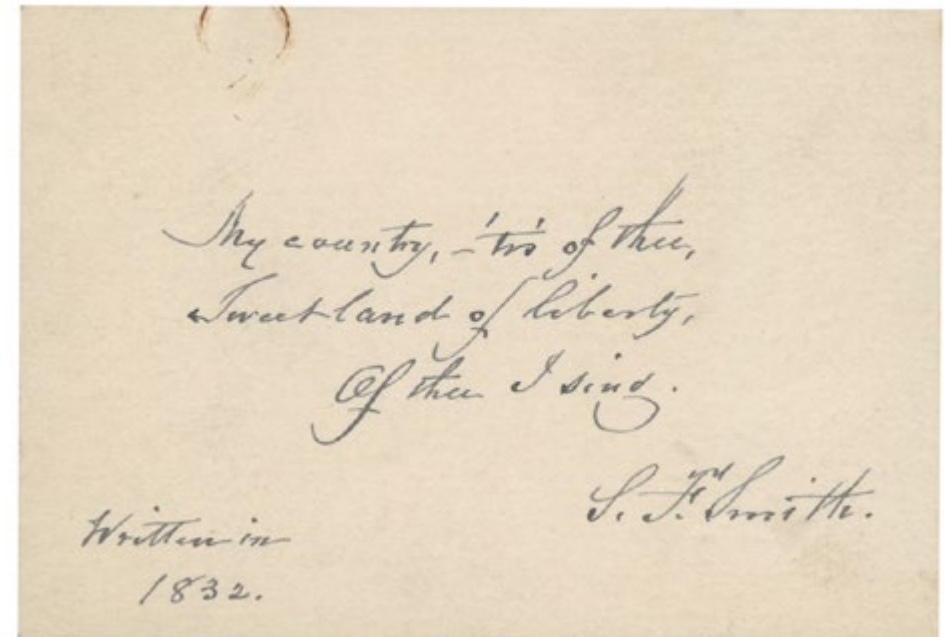 My country, 'tis of thee,
Sweet land of liberty,
Of thee I sing.
S. F. Smith.
Written in
1832.